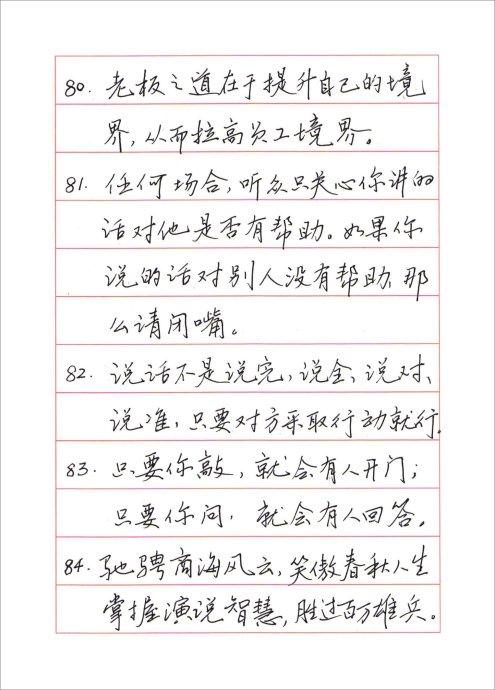 80. 老板之道在于提升自己的境
界,从而拉高员工境界。
81. 任何场合,听众只关心你讲的
话对他是否有帮助。如果你
说的话对别人没有帮助,那
么请闭嘴。
82. 说话不是说完,说全、说对、
说准,只要对方采取行动就行。
83. 只要你敲,就会有人开门;
只要你问,就会有人回答。
84. 驰骋商海风云,笑傲春秋人生
掌握演说智慧,胜过百万雄兵。